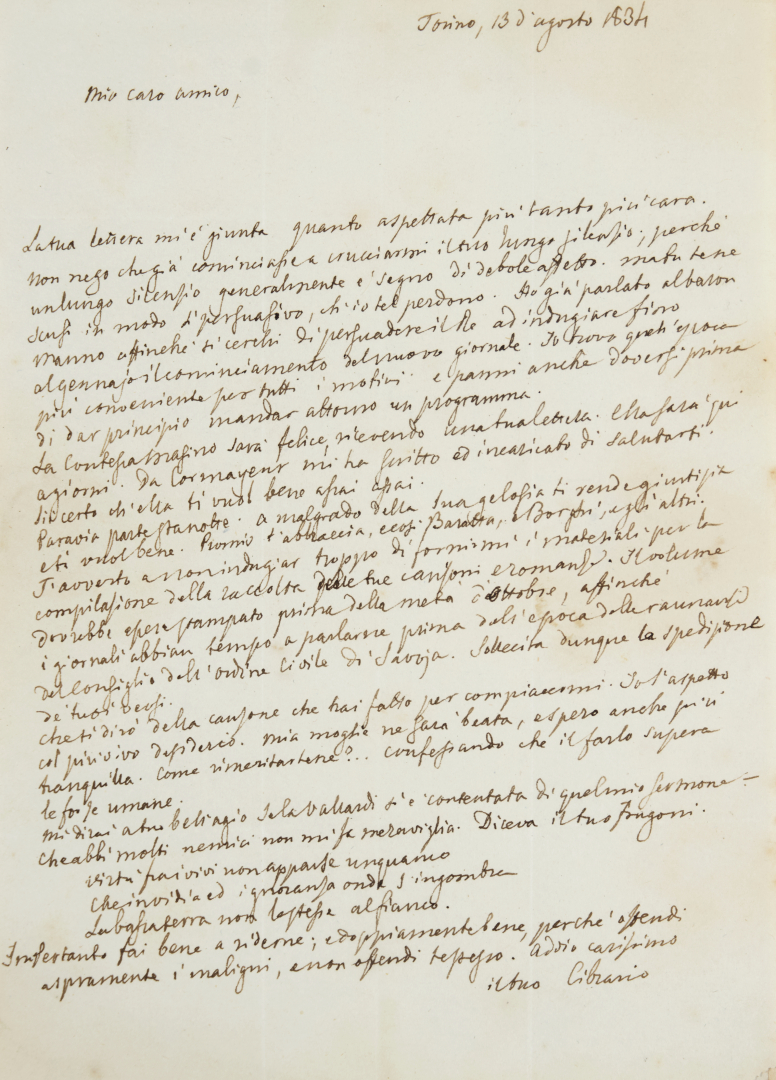 Torino, 13 d'agosto 1834
Mio caro amico,
La tua lettera mi è giunta quanto aspettata più tanto più cara.
Non nego che già cominciasse a crucciarmi il tuo lungo silenzio, perché
un lungo silenzio generalmente è segno di debole affetto. ma tu te ne
scusi in modo sì persuasivo, ch'io tel perdono. Ho già parlato al baron
Manno affinché ti cerchi di persuadere il Re ad indugiare fino
al gennajo il cominciamento del nuovo giornale. Io trovo quest'epoca
più conveniente per tutti i motivi. e parmi anche doversi prima
di dar principio mandar attorno un programma.
La Contessa Masino sarà felice, ricevendo una tua lettera. Ella sarà qui
a giorni. Da Cormayeur mi ha scritto ed incaricato di salutarti.
Sii certo ch'ella ti vuol bene assai assai.
Paravia parte stanotte. a malgrado della sua gelosia ti rende giustizia
e ti vuol bene. Promis t'abbraccia, e così Baratta, e Borghi, e gli altri.
T'avverto a non indugiar troppo di fornirmi i materiali per la
compilazione della raccolta delle tue canzoni e romanze. Il volume
dovrebbe essere stampato prima della metà d'ottobre, affinché
i giornali abbian tempo a parlarne prima dell'epoca delle raunanze
del Consiglio dell'ordine Civile di Savoja. Sollecita dunque la spedizione
de' tuoi versi.
Che ti dirò della canzone che hai fatto per compiacermi. Io l'aspetto
col più vivo desiderio. mia moglie ne sarà beata, e spero anche più
tranquilla. Come rimeritartene?... Confessando che il farlo supera
le forze umane.
Mi dirai a tuo bell'agio se la Vallardi si è contentata di quel mio sermone –
Che abbi molti nemici non mi fa meraviglia. Diceva il tuo Frugoni.
Virtù fra i vivi non apparse unquanco
Che invidia ed ignoranza onde s'ingombra
La bassa terra non le stesse al fianco.
Infrattanto fai bene a riderne; e doppiamente bene, perché offendi
aspramente i maligni, e non offendi te stesso. Addio carissimo
il tuo Cibrario